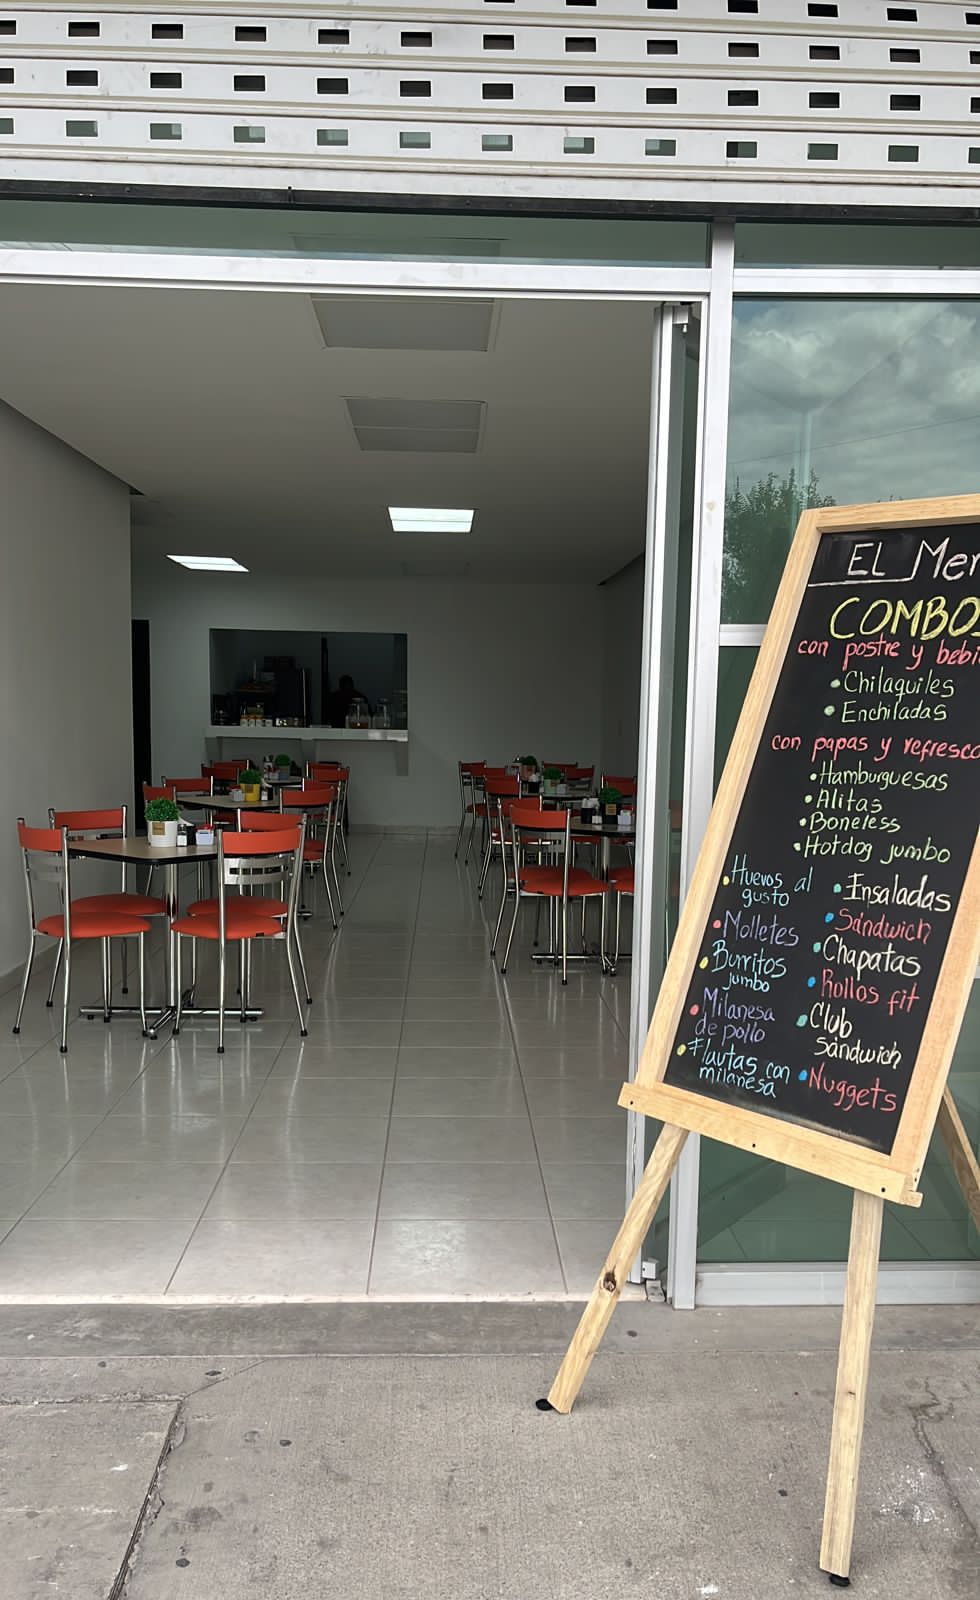 EL
COMBO
con postre y
• Chilaquiles
• Enchiladas
con papas y refresco
• Hamburguesas
• Alitas
• Boneless
• Hotdog jumbo
• Huevos al
gusto
• Molletes
• Burritos
jumbo
• Milanesa
de pollo
• Flautas con
milanesa
• Ensaladas
• Sándwich
• Chapatas
• Rollos fit
• Club
sándwich
• Nuggets